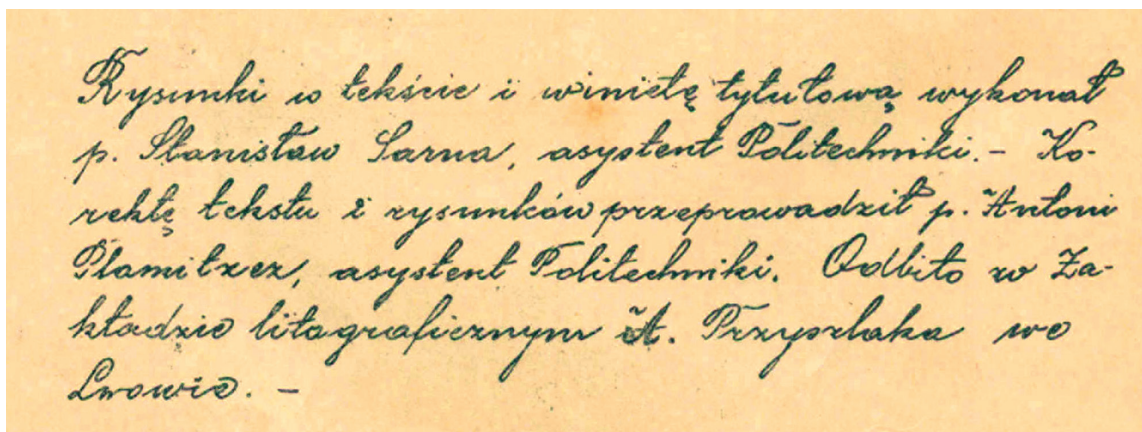 Rysunki w tekście i winietę tytułową wykonał
p. Stanisław Sarna, asystent Politechniki. – Ko-
rektę tekstu i rysunków przeprowadził p. Antoni
Plamitzer, asystent Politechniki. Odbito w Za-
kładzie litograficznym A. Przyszlaka we
Lwowie. –